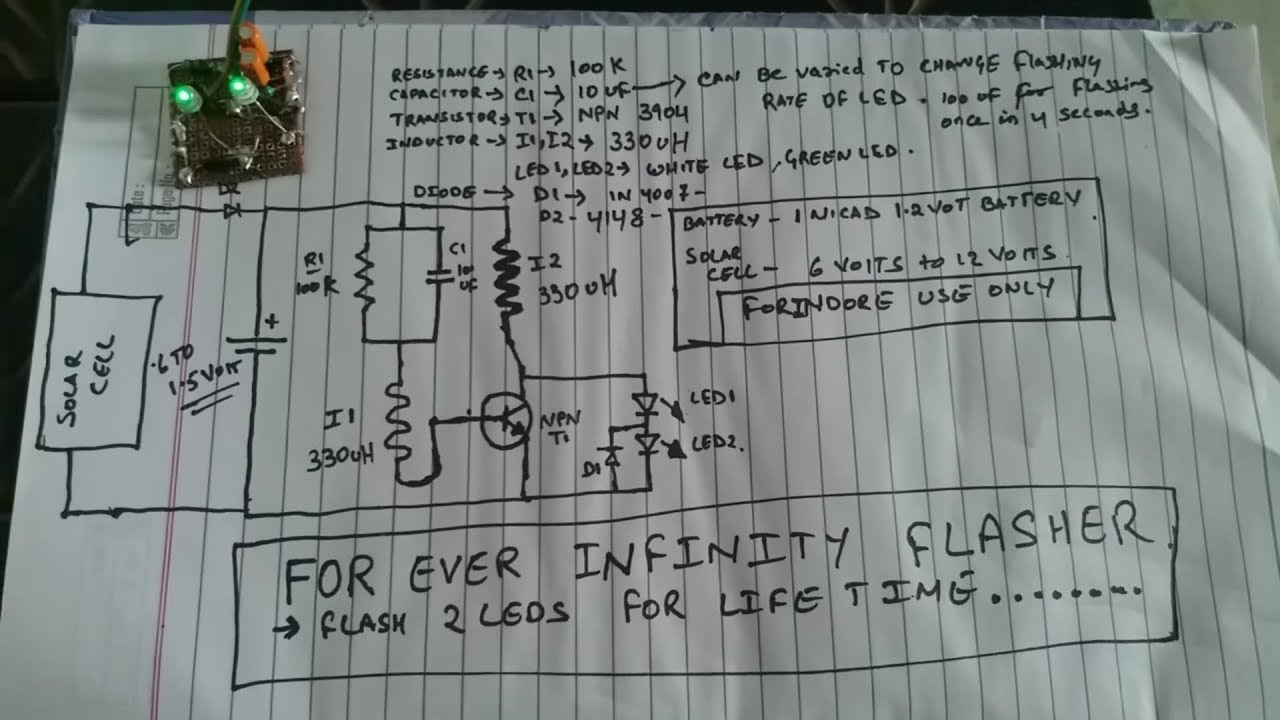 RESISTANCE → R1 → 100K
CAPACITOR → C1 → 10UF → CAN BE VARIED TO CHANGE FLASHING
RATE OF LED. 100 UF for Flashing
once in 4 seconds.
TRANSISTOR → T1 → NPN 3904
INDUCTOR → I1, I2 → 330UH
LED1, LED2 → WHITE LED, GREEN LED.
DIODE → D1 → IN 4007 -
D2 - 4148 -
BATTERY - 1 NICAD 1.2 VOT BATTERY.
SOLAR
CELL - 6 VOITS to 12 VOITS.
FORINDORE USE ONLY
Date:
Page No.
D2
R1
100K
C1
10
UF
I2
330UH
SOLAR
CELL
.6 TO
1.5 VOIT
+
I1
330UH
NPN
T1
LED1
LED2.
D1
FOR EVER INFINITY FLASHER.
→ FLASH 2 LEDS FOR LIFE TIME........